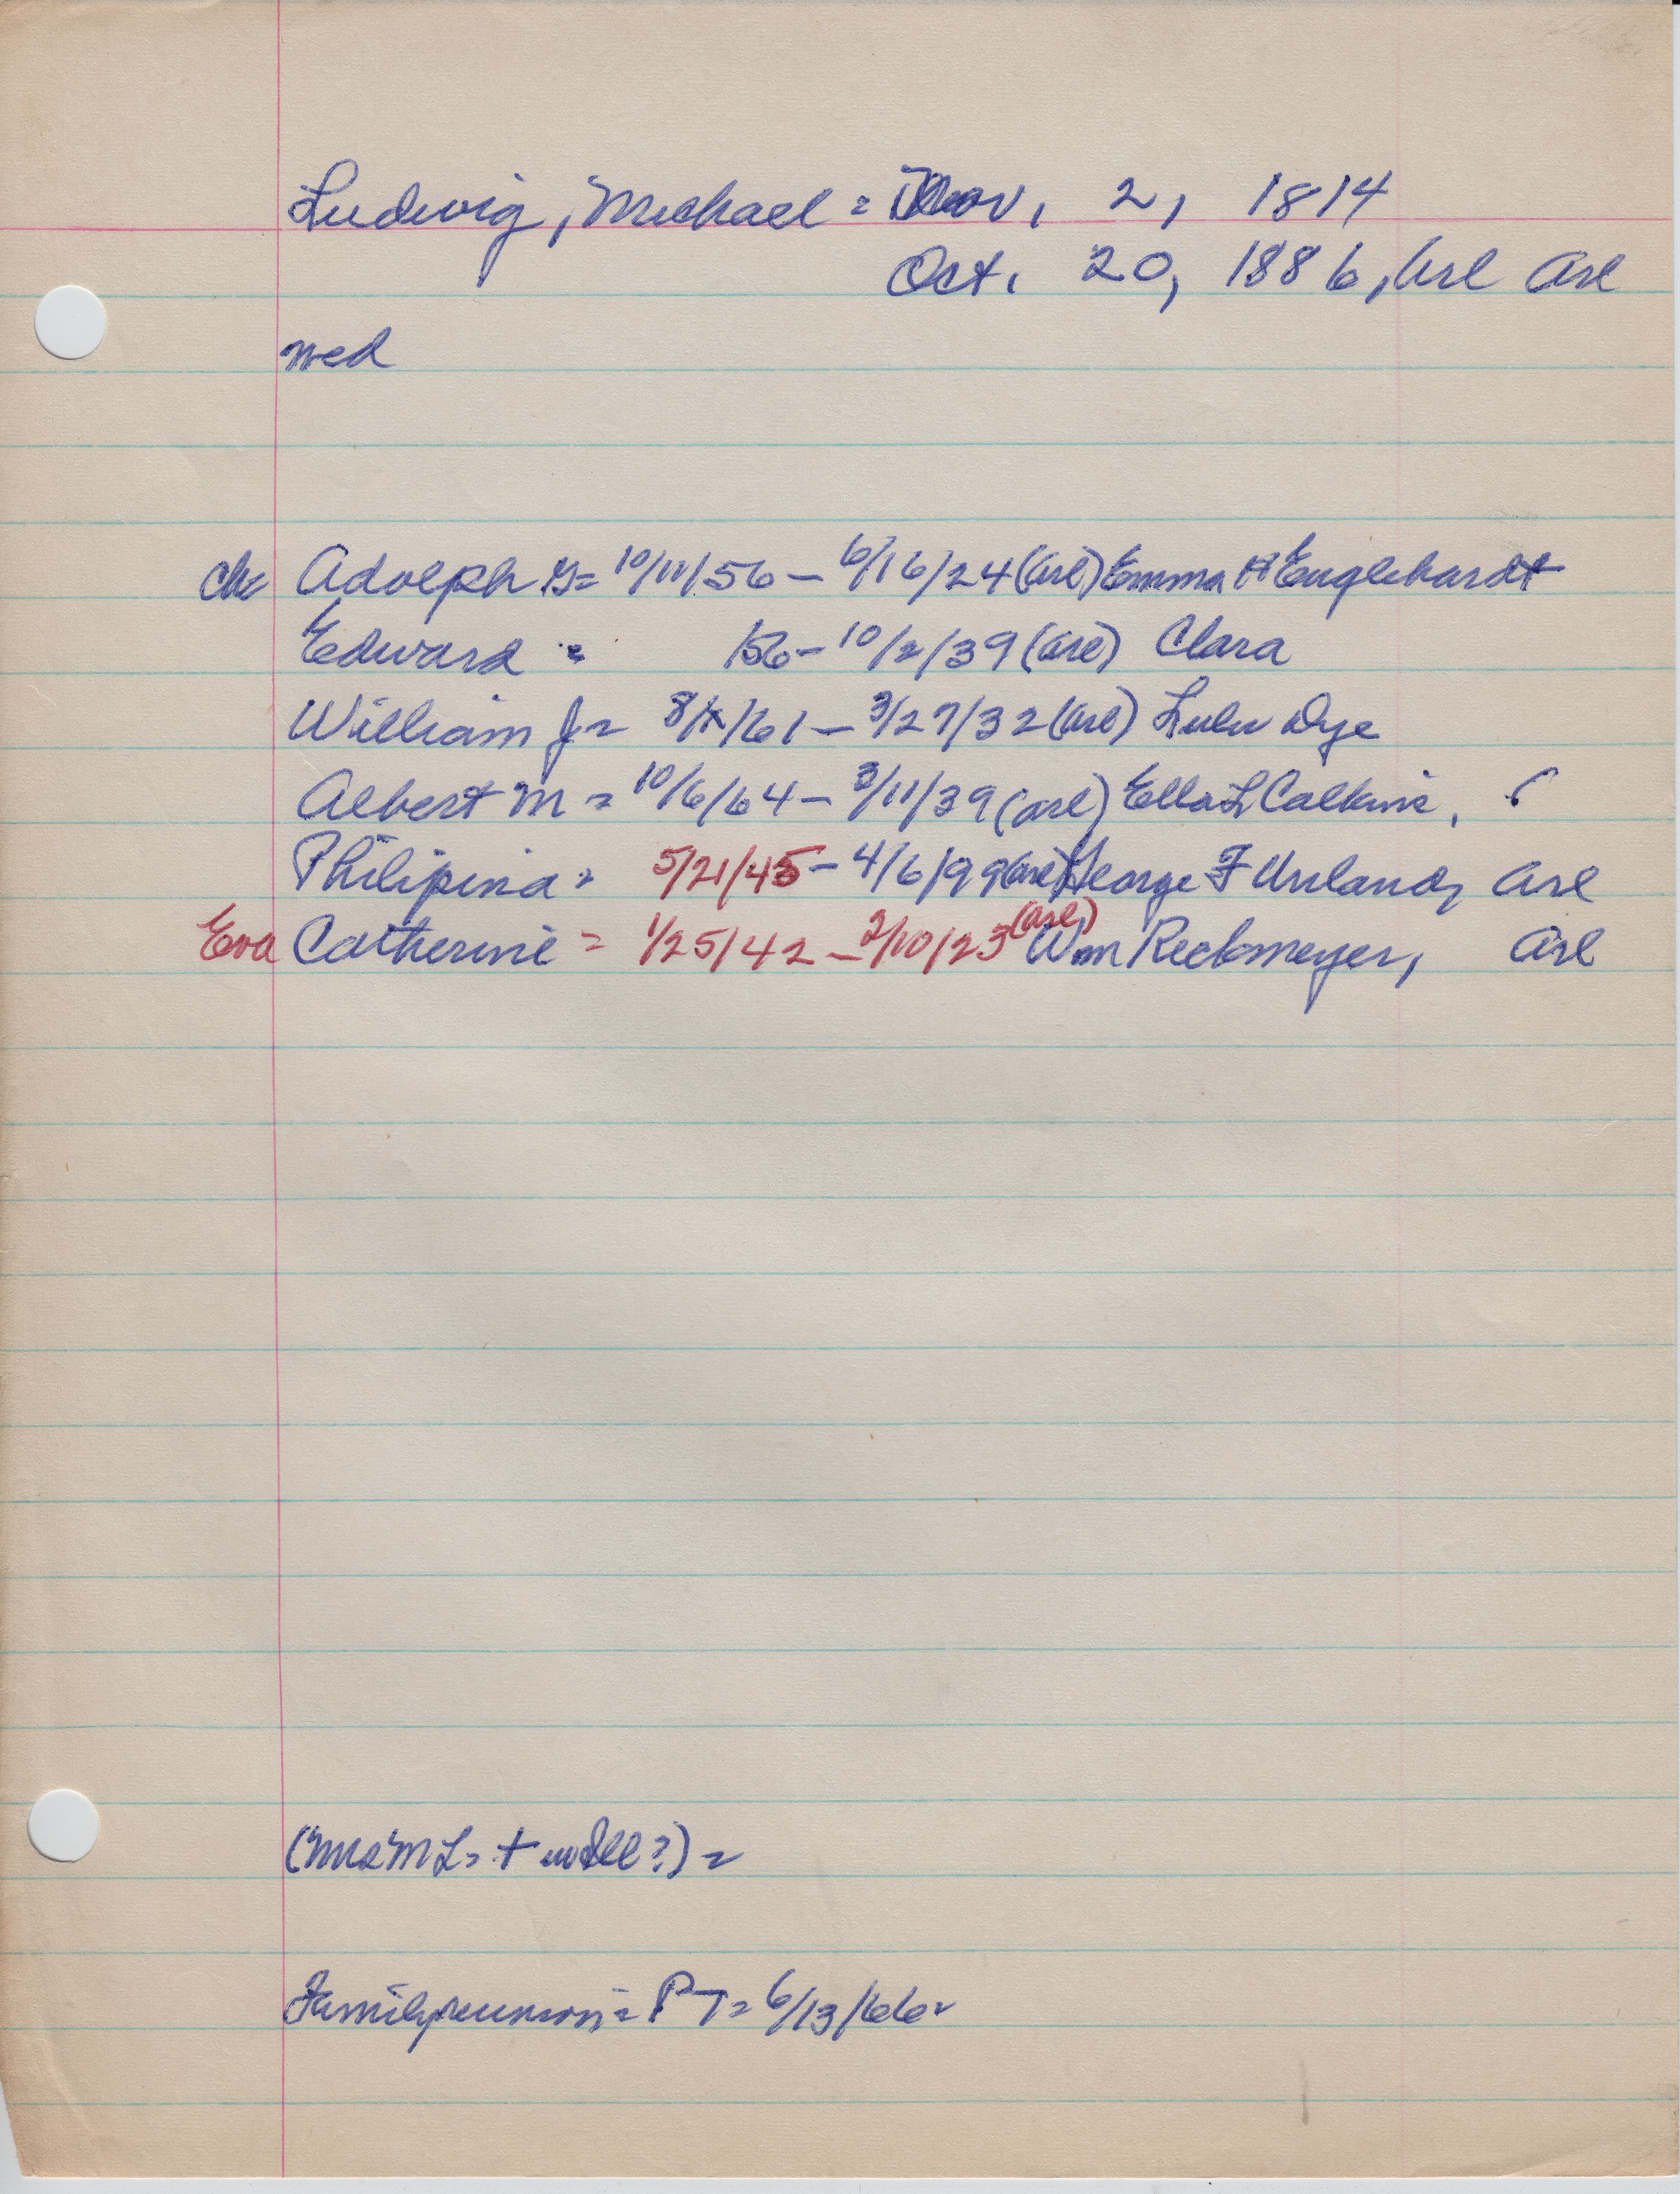 Ludwig, Michael = Nov, 2, 1814
Oct, 20, 1886, Arl Arl
wed
ch= Adolph G= 10/11/56 – 6/16/24 (Arl) Emma H Englehardt
Edward = 56 – 10/2/39 (Arl) Clara
William J= 8/ /61 – 3/27/32 (Arl) Lulu Dye
Albert M = 10/6/64 – 3/11/39 (Arl) Ella L Calkins,
Philipina = 5/21/45 – 4/6/99 (Arl) George F Urland, Arl
Eva Catherine = 1/25/42 – 2/10/23 (Arl) Wm Reckmeyer, Arl
(Mrs M L= + ?) =
Family reunion = P T= 6/13/66=